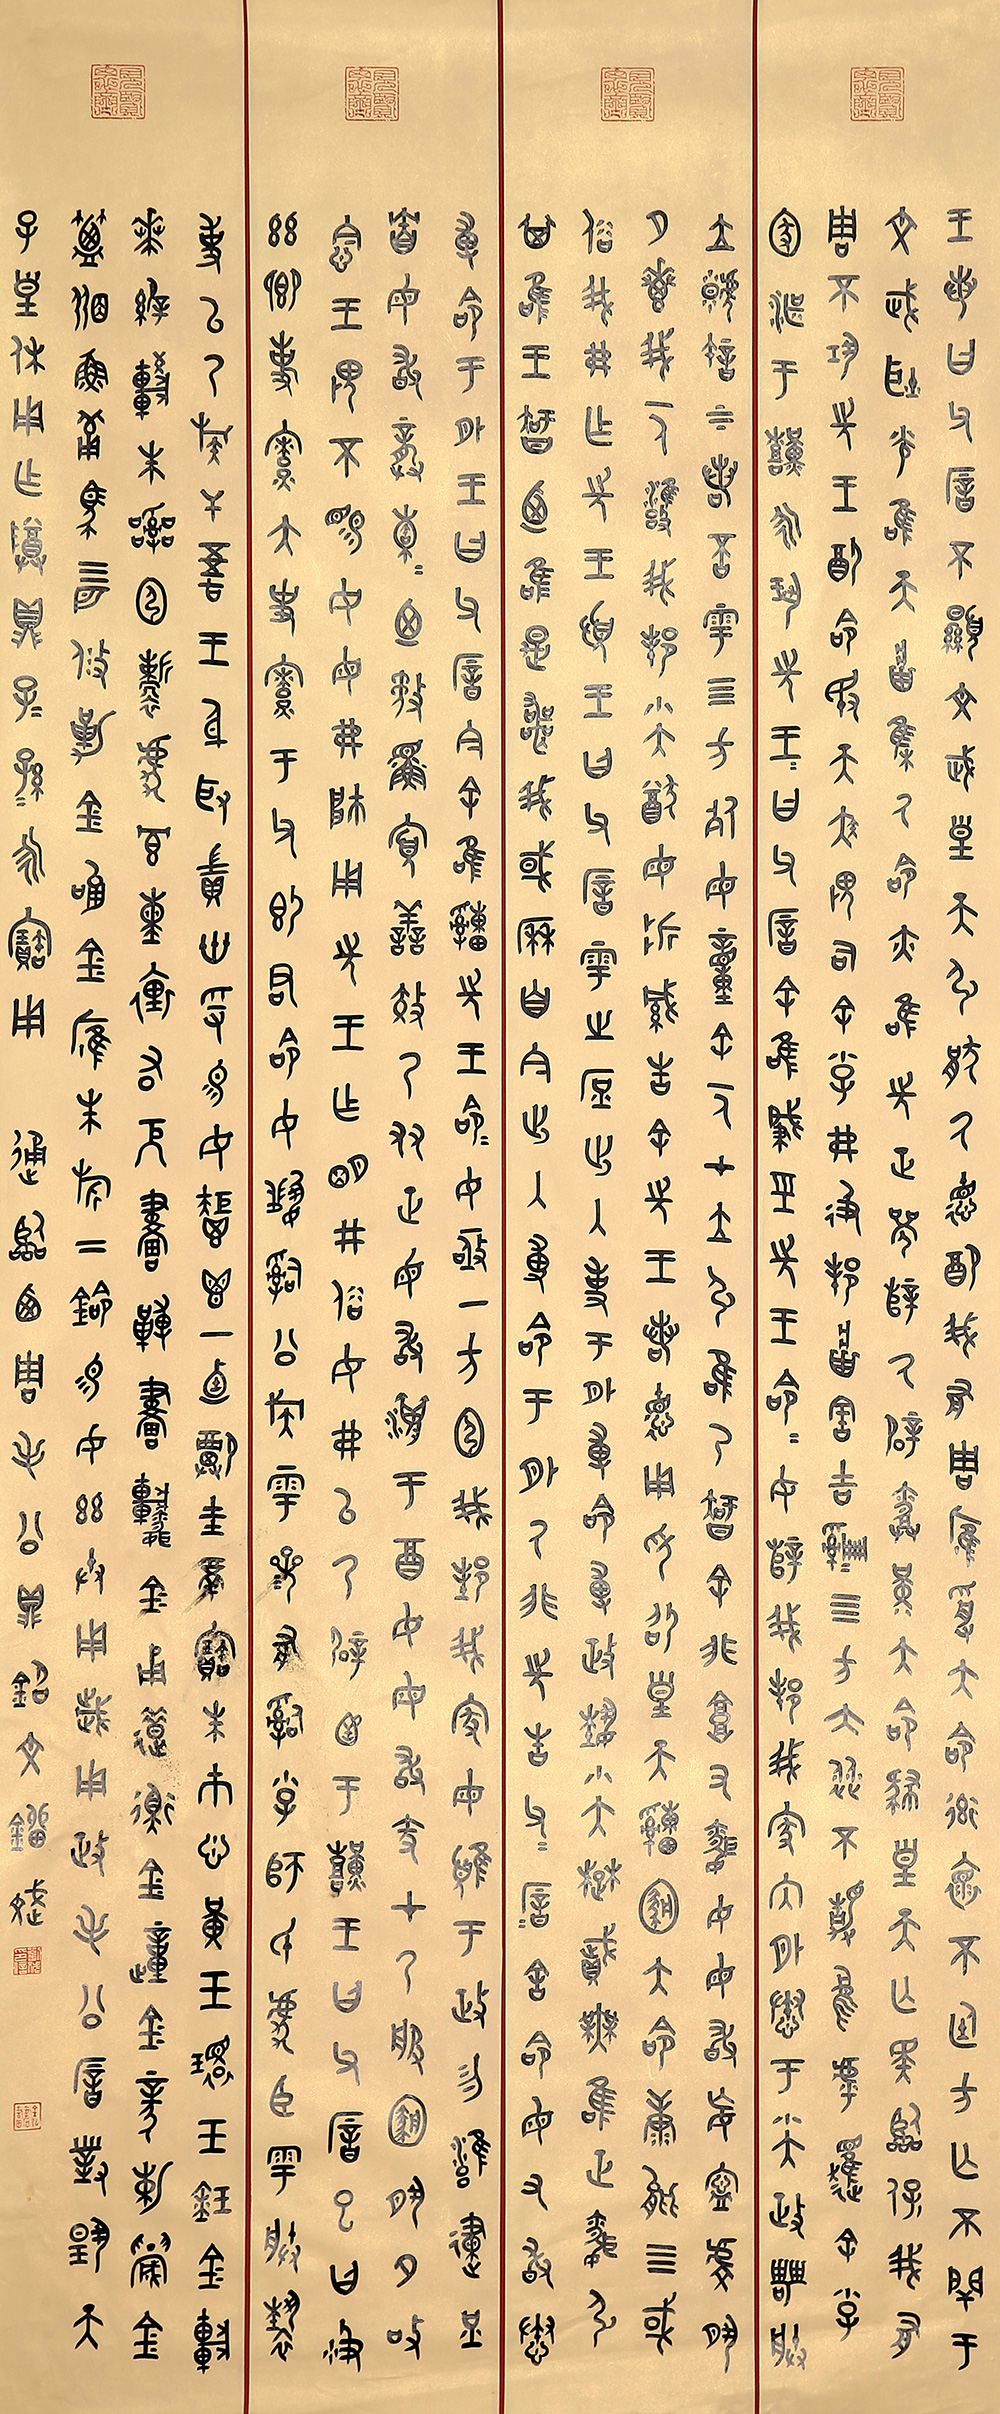 王若曰父厝不顯文武皇天引厭厥德配我有周膺受大命率懷不廷方亡不閈于
文武耿光唯天將集厥命亦唯先正襄辥厥辟勞堇大命肆皇天亡斁臨保我有
周不巩先王配命敃天疾畏司余小子弗彶邦將害吉四方大縱不靜烏虖趯余小子
圂湛于艱永巩先王=曰父厝余唯肇巠先王命=女辥我邦我家內外惷于小大政甹朕
立虩許上下若否雩四方死母童余一人才立引唯乃智余非庸又昏女母敢妄寧虔夙
夕惠我一人雝我邦小大猷母折緘告余先王若德用卬邵皇天申恪大命康能四或
俗我弗乍先王憂王曰父厝雩之庶出入事于外尃命尃政埶小大楚賦無唯正昏引
其唯王智廼唯是喪我或歷自今出入尃命于外厥非先告父=厝=舍命母又敢惷
尃命于外王曰父厝今余唯申先王命=女亟一方圅我邦我家母顀于政勿雝律庶
貯母敢龏橐=廼敄鰥寡善效乃友正母敢湎于酉女母敢墜才乃服恪夙夕敬
念王畏不賜女母弗帥用先王乍明井俗女弗以乃辟圅于艱王曰父厝已曰彶
茲卿事寮大史寮于父即尹命女司公族雩參有司小子師氏虎臣雩朕褻
事以乃族干吾王身取專卅寽賜女秬鬯一卣祼圭瓚寶朱市悤黃玉環玉瑹金車
賁緙較朱圅靳虎冟熏裏右厄畫畫金甬錯衡金踵金豙金
簟笰魚葡馬四匹攸勒金金膺朱旂二鈴賜女茲用歲用政毛公厝對揚天
子皇休用乍尊鼎子=孫=永寶用 通臨西周毛公鼎銘文